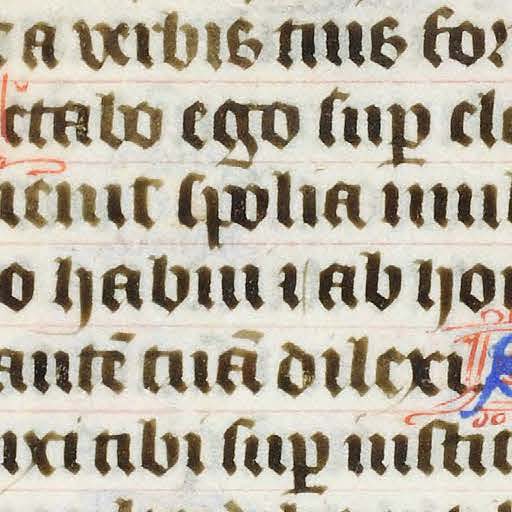 a verbis tuis for
ctabo ego sup̱ elo
uenit spolia mul
o habui ⁊ ab hom
autē tuā dilexi
ixi tibi sup̱ iustic